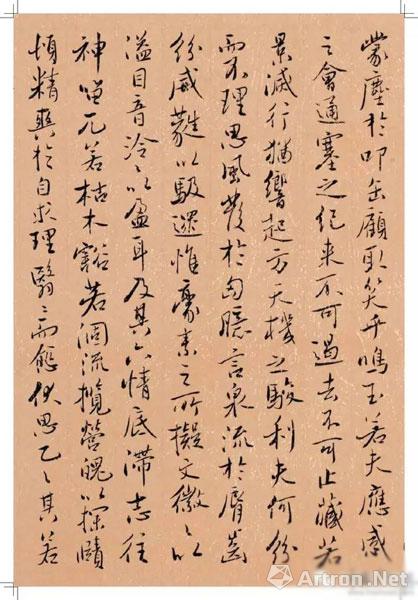 蒙塵於叩缶顧取笑乎鳴玉若夫應感
之會通塞之紀來不可遏去不可止藏若
景滅行猶響起方天機之駿利夫何紛
而不理思風發於匈臆言泉流於脣齒
紛威蕤以馺遝惟豪素之所擬文徽々以
溢目音泠々以盈耳及其六情底滯志往
神留兀若枯木豁若涸流攬營魄以探賾
頓精爽於自求理翳々而愈伏思乙々其若
Artron.Net